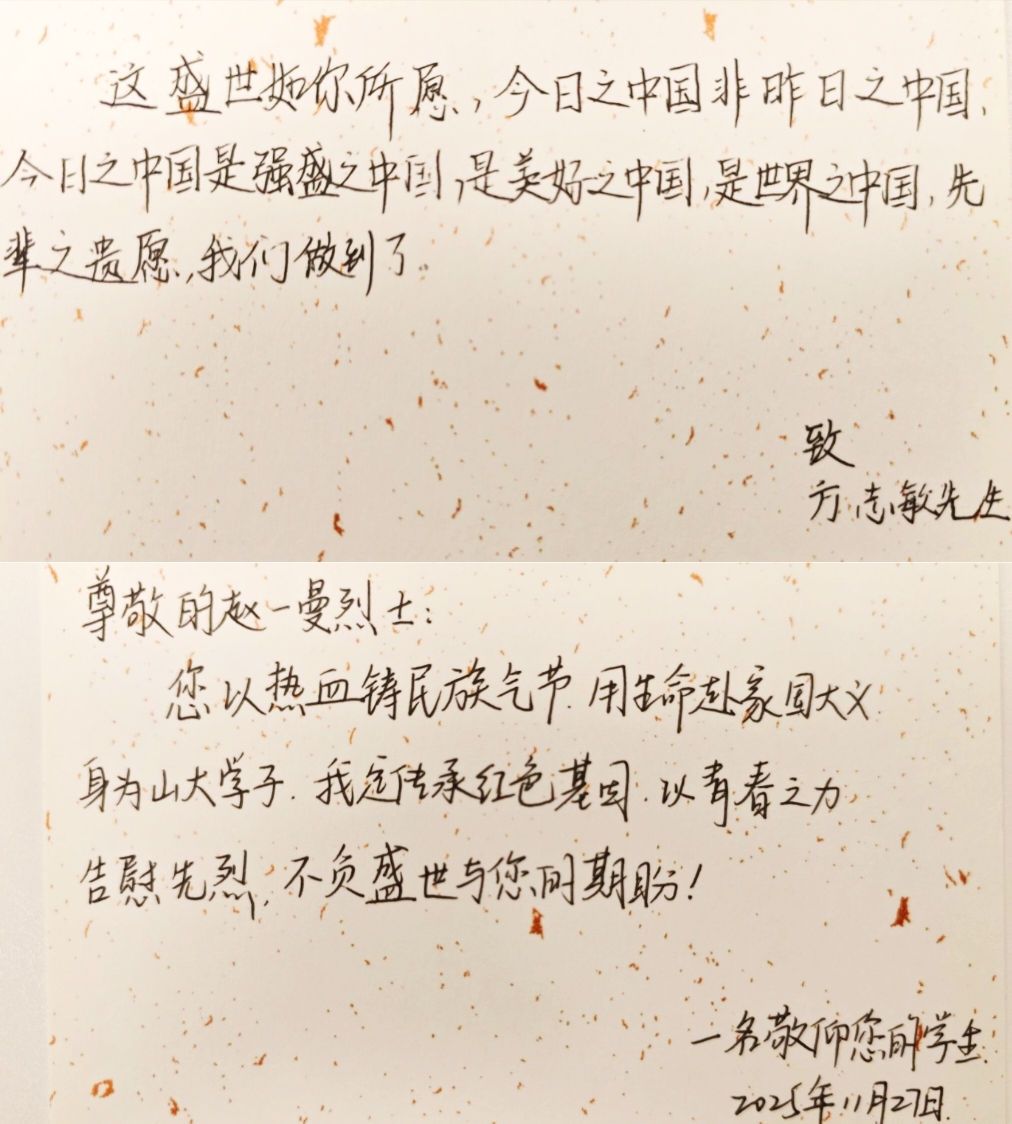 这盛世如你所愿,今日之中国非昨日之中国,
今日之中国是强盛之中国,是美好之中国,是世界之中国,先
辈之贵愿,我们做到了。
致
方志敏先生
尊敬的赵一曼烈士:
您以热血铸民族气节.用生命赴家国大义
身为山大学子.我定传承红色基因.以青春之力
告慰先烈,不负盛世与您的期盼!
一名敬仰您的学生
2025年11月27日